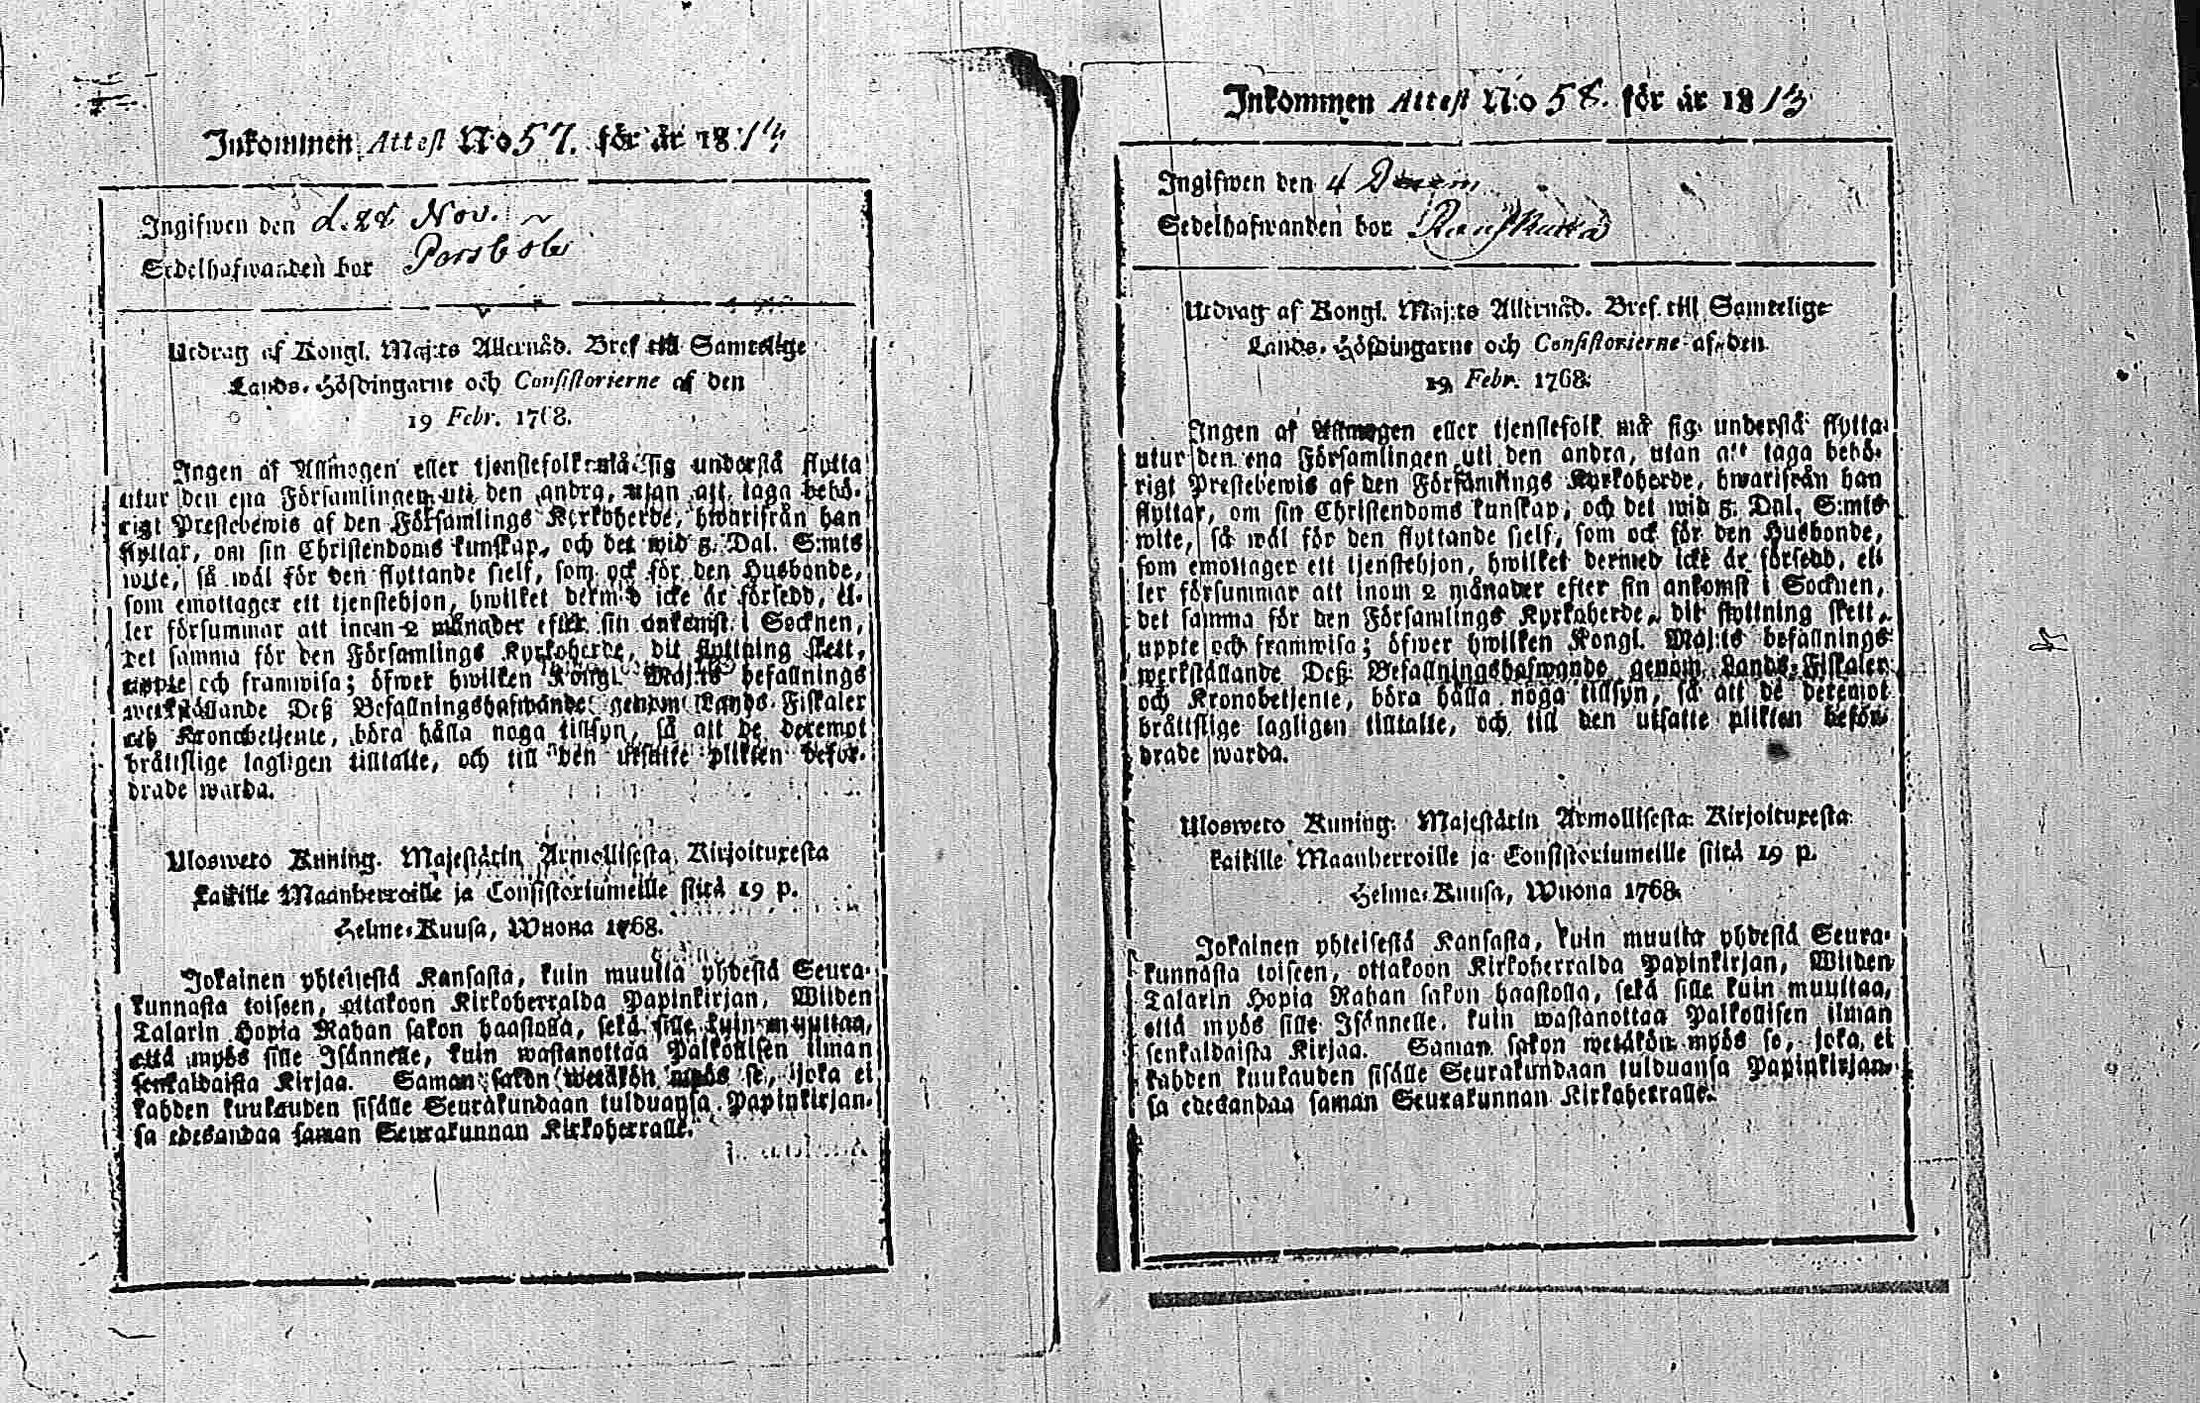 Inkommen Attest N:o 57. för år 18
Ingifwen den d. 28 Nov.
Sedelhafwanden bor
Utdrag af Kongl. Maj:ts Allernåd. Bref till Samtelige
Lands-Höfdingarne och Consistorierne af den
19 Febr. 1768.
Ingen af Allmogen eller tjenstefolk må sig understå flytta
utur den ena Församlingen uti den andra, utan att taga behö-
rigt Prestebewis af den Församlings Kyrkoherde, hwarifrån han
flyttar, om sin Christendoms kunskap, och det wid 5. Dal. S:mts
wite, så wäl för den flyttande sielf, som ock för den Husbonde,
som emottager ett tjenstehjon, hwilket dermed icke är försedd, el-
ler försummar att inom 2 månader efter sin ankomst i Socknen,
det samma för den Församlings Kyrkoherde, dit flyttning skett,
uppte och framwisa; öfwer hwilken Kongl. Maj:ts befallnings
werkställande Deß Befallningshafwande genom Lands-Fiskaler
och Kronobetjente, böra hålla noga tillsyn, så att de deremot
bråttslige lagligen tilltalte, och till den utsatte plikten beför-
drade warda.
Ulosweto Kuning. Majestätin Armollisesta Kirjoituxesta
kaikille Maanherroille ja Consistoriumeille siitä 19 p.
Helme-Kuusa, Wuona 1768.
Jokainen yhteisestä Kansasta, kuin muutta yhdestä Seura-
kunnasta toiseen, ottakoon Kirkoherralda Papinkirjan, Wiiden
Talarin Hopia Rahan sakon haastolla, sekä sille kuin muuttaa,
että myös sille Isännelle, kuin wastanottaa Palkollisen ilman
senkaldaista Kirjaa. Saman sakon wetäkön myös se, joka ei
kahden kuukauden sisälle Seurakundaan tulduansa Papinkirjan-
sa edesandaa saman Seurakunnan Kirkoherralle.
Inkommen Attest N:o 58. för år 1813
Ingifwen den 4 Decem
Sedelhafwanden bor
Utdrag af Kongl. Maj:ts Allernåd. Bref till Samtelige
Lands-Höfdingarne och Consistorierne af den
19 Febr. 1768.
Ingen af Allmogen eller tjenstefolk må sig understå flytta
utur den ena Församlingen uti den andra, utan att taga behö-
rigt Prestebewis af den Församlings Kyrkoherde, hwarifrån han
flyttar, om sin Christendoms kunskap, och det wid 5. Dal. S:mts
wite, så wäl för den flyttande sielf, som ock för den Husbonde,
som emottager ett tjenstehjon, hwilket dermed icke är försedd, el-
ler försummar att inom 2 månader efter sin ankomst i Socknen,
det samma för den Församlings Kyrkoherde, dit flyttning skett,
uppte och framwisa; öfwer hwilken Kongl. Maj:ts befallnings
werkställande Deß Befallningshafwande genom Lands-Fiskaler
och Kronobetjente, böra hålla noga tillsyn, så att de deremot
bråttslige lagligen tilltalte, och till den utsatte plikten beför-
drade warda.
Ulosweto Kuning. Majestätin Armollisesta Kirjoituxesta
kaikille Maanherroille ja Consistoriumeille siitä 19 p.
Helme-Kuusa, Wuona 1768.
Jokainen yhteisestä Kansasta, kuin muutta yhdestä Seura-
kunnasta toiseen, ottakoon Kirkoherralda Papinkirjan, Wiiden
Talarin Hopia Rahan sakon haastolla, sekä sille kuin muuttaa,
että myös sille Isännelle, kuin wastanottaa Palkollisen ilman
senkaldaista Kirjaa. Saman sakon wetäkön myös se, joka ei
kahden kuukauden sisälle Seurakundaan tulduansa Papinkirjan-
sa edesandaa saman Seurakunnan Kirkoherralle.